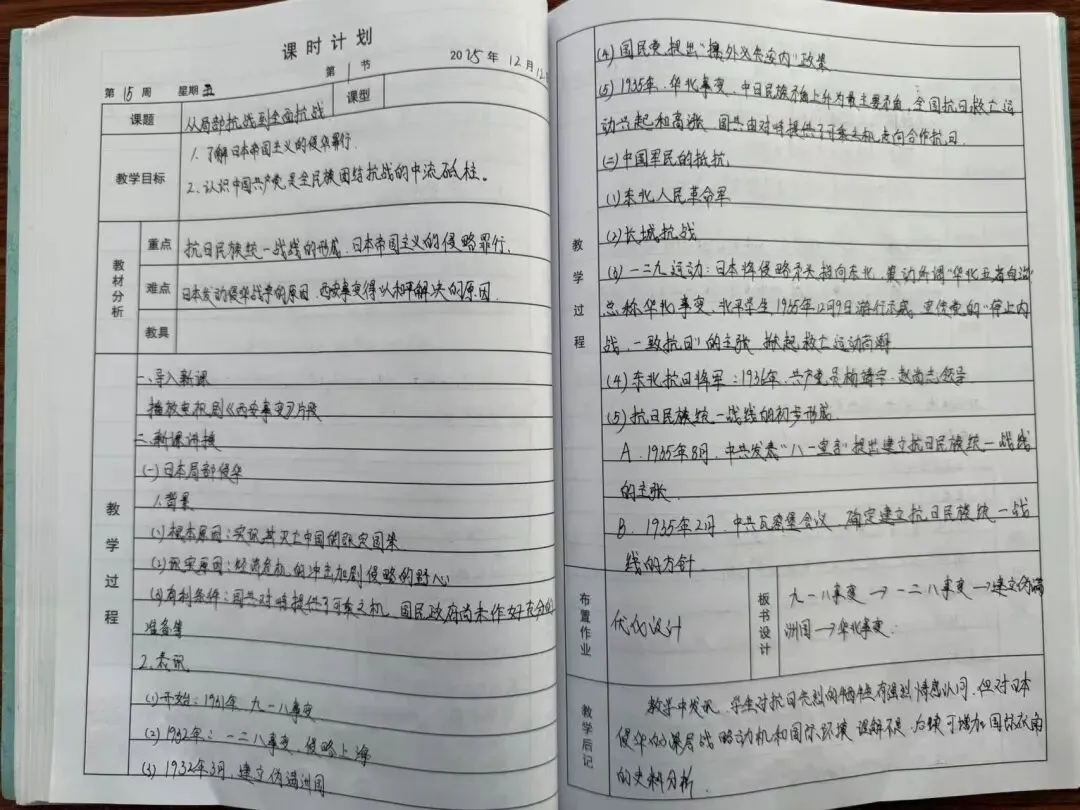 课时计划
第 1 节
2025年12月12日
第 15 周 星期五
课题 从局部抗战到全面抗战 课型
教学目标 1. 了解日本帝国主义的侵华罪行.
2. 认识中国共产党是全民族团结抗战的中流砥柱。
教材分析
重点 抗日民族统一战线的形成. 日本帝国主义的侵略罪行.
难点 日本发动侵华战争的原因. 西安事变得以和平解决的原因
教具
教学过程
一.导入新课
播放电视剧《西安事变》片段
二.新课讲授
(一)日本局部侵华
1.背景
(1)根本原因:实现其灭亡中国的既定国策
(2)现实原因:经济危机的冲击加剧侵略的野心
(3)有利条件:国共对峙提供了可乘之机. 国民政府尚未作好充分的
准备等
2.表现
(1)开始:1931年 九一八事变
(2)1932年:一二八事变, 侵略上海
(3)1932年3月, 建立伪满洲国
教学过程
(4)国民党提出"攘外必先安内"政策
(5)1935年, 华北事变, 中日民族矛盾上升为最主要矛盾, 全国抗日救亡运
动兴起和高涨 国共由对峙提供了可乘之机走向合作抗日.
(二)中国军民的抵抗.
(1)东北人民革命军
(2)长城抗战
(3)一二九运动:日本将侵略矛头指向东北, 策动所谓"华北五省自治"
总称华北事变, 北平学生1935年12月9日游行示威 宣传党的"停止内
战, 一致抗日"的主张 掀起救亡运动高潮
(4)东北抗日将军:1936年, 共产党员杨靖宇. 赵尚志领导
(5)抗日民族统一战线的初步形成
A. 1935年8月, 中共发表"八一宣言"提出建立抗日民族统一战线
的主张.
B. 1935年2月 中共瓦窑堡会议, 确定建立抗日民族统一战
线的方针
布置作业 优化设计
板书设计 九一八事变→一二八事变→建立伪满
洲国→华北事变.
教学后记
教学中发现, 学生对抗日先烈的牺牲有强烈情感认同, 但对日本
侵华的深层战略动机和国际环境 理解不足. 后续可增加国际视角
的史料分析.